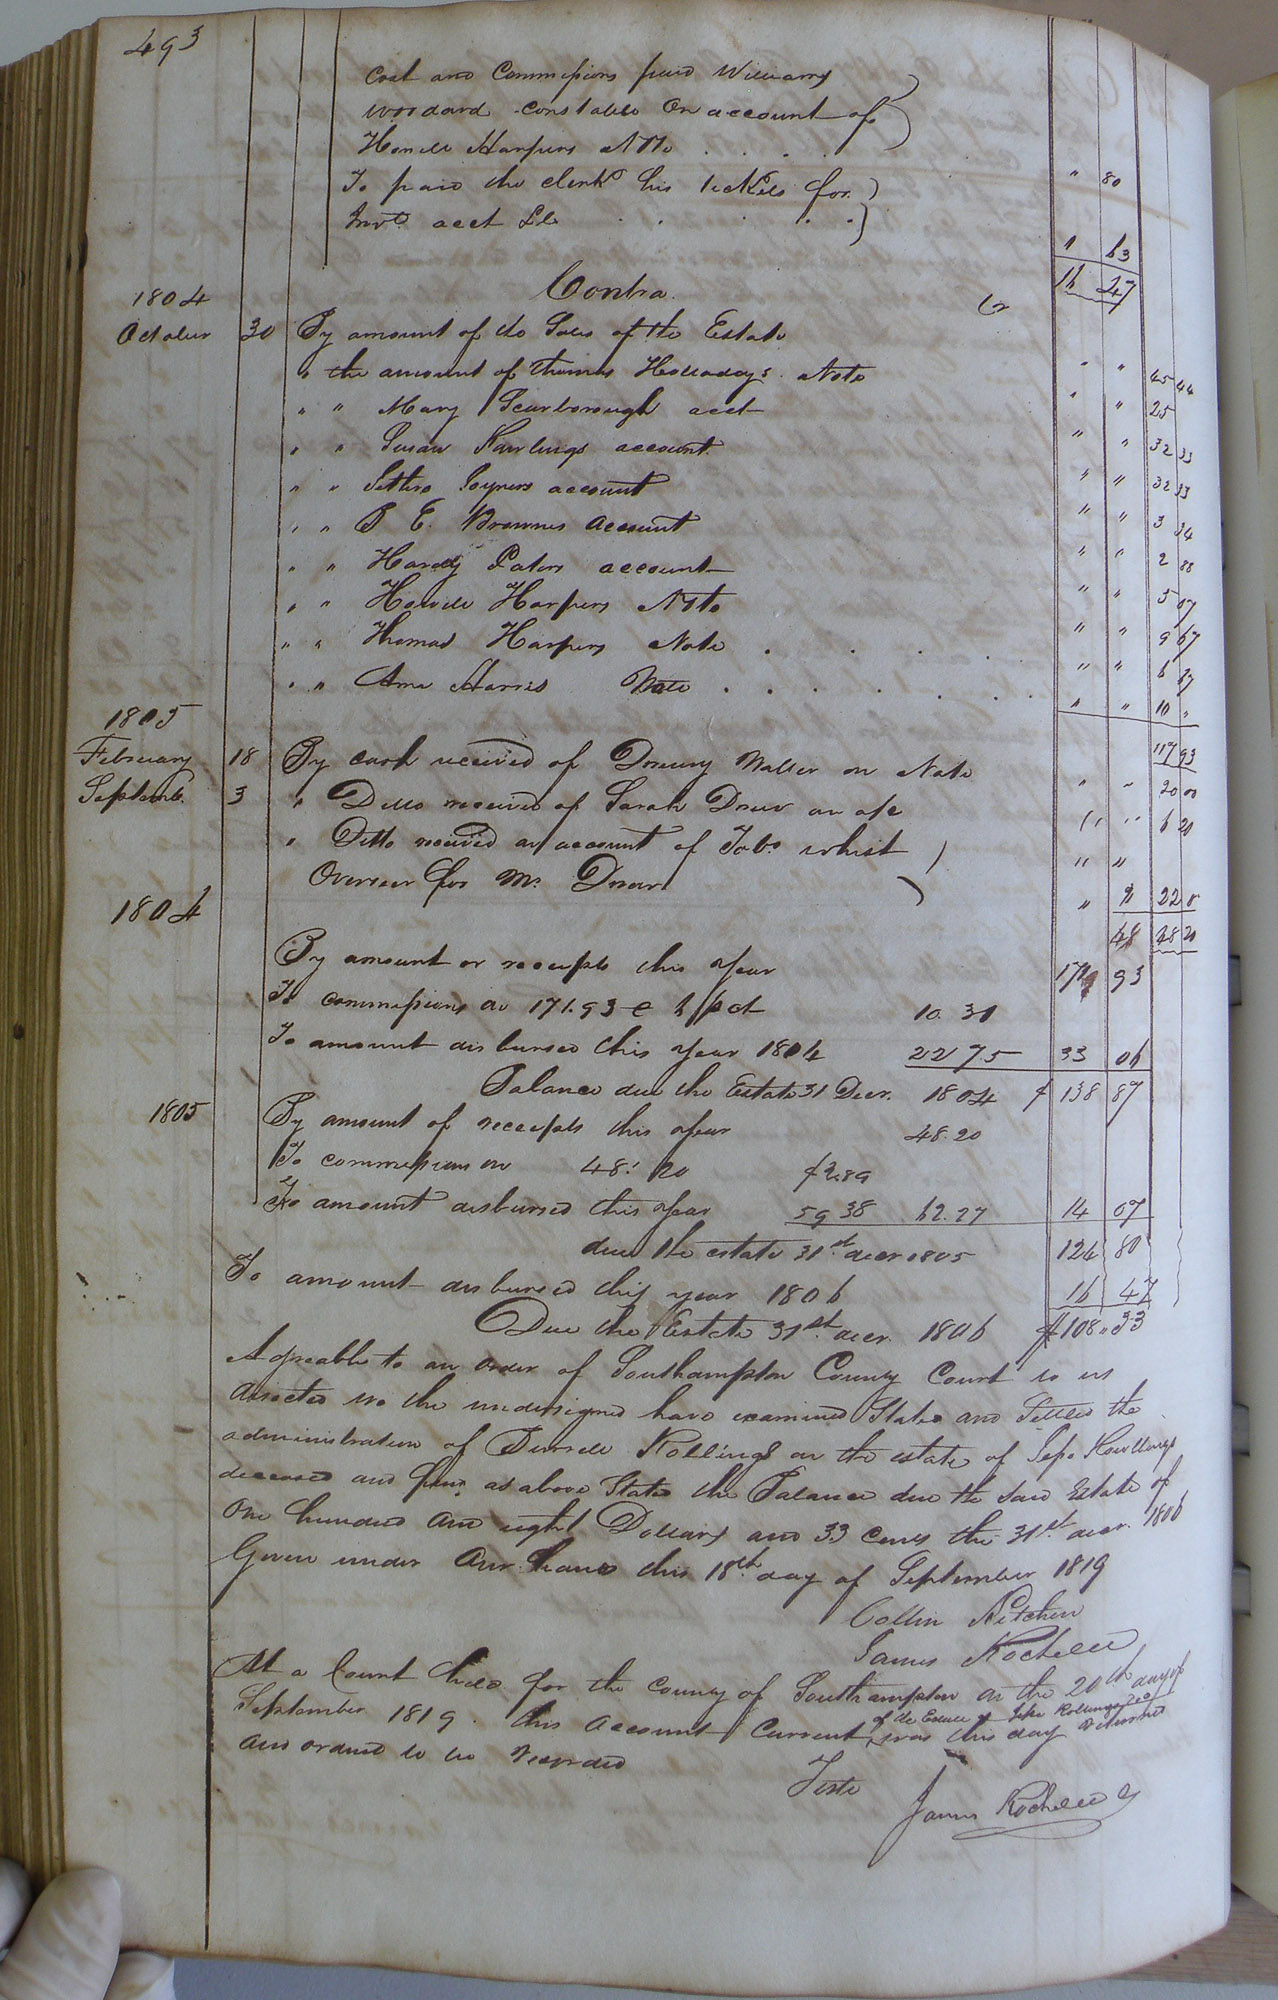 493
Cost and Commissions paid William
Woodard constable On account of
Howell Harpers Note . . . . " 80
To paid the clerk his tickets for
Invt acct &c . . . . . 1 63
16 47
Contra Cr
1804
October 30 By amount of the Sales of the Estate " " 45 44
" the amount of Thomas Holladays Note " " 25
" " Mary Scarborough acct " " 32 33
" " Susan Rawlings account " " 32 33
" " Joyners account " " 3 34
" " B E. Brownes account " " 2 88
" " Hardy account " " 5 07
" " Howell Harpers Note " " 9 67
" " Thomas Harpers Note . . . . " " 6 27
" " Harris Note . . . . . . . " " 10 "
117 93
1805
February 18 By cash received of Drewry Waller on Note " " 20 00
Septemb. 3 " Ditto received of Sarah Drew on a/c " " 6 20
" Ditto received on account of Jobs whilst " "
Overseer for Mrs Drew " " 22 0
48 48 20
1804
By amount or receipts this year 171 93
To commissions on 171.93 @ 6 pct 10. 31
To amount disbursed this year 1804 22 75 33 06
Balance due the Estate 31 Decr. 1804 $ 138 87
1805 By amount of receipts this year 48.20
To commission on 48. 20 $2.89
To amount disbursed this year 59 38 62.27 14 07
due the estate 31st decr 1805 124 80
To amount disbursed this year 1806 16 47
Due the Estate 31st decr. 1806 $108.. 33
Agreable to an order of Southampton County Court to us
directed we the undersigned have examined Stated and Settled the
administration of Burwell Rollings on the estate of
deceased and find as above Stated the Balance due the said Estate of
One hundred and eight Dollars and 33 cents the 31st decr. 1806
Given under Our hands this 18th day of September 1819
Collin Kitchen
James Rochelle
At a Court held for the county of Southampton on the 20th day of
of the Estate of Rollings decd
September 1819. this Account Current was this day returned
and ordered to be recorded
Teste
James Rochelle C